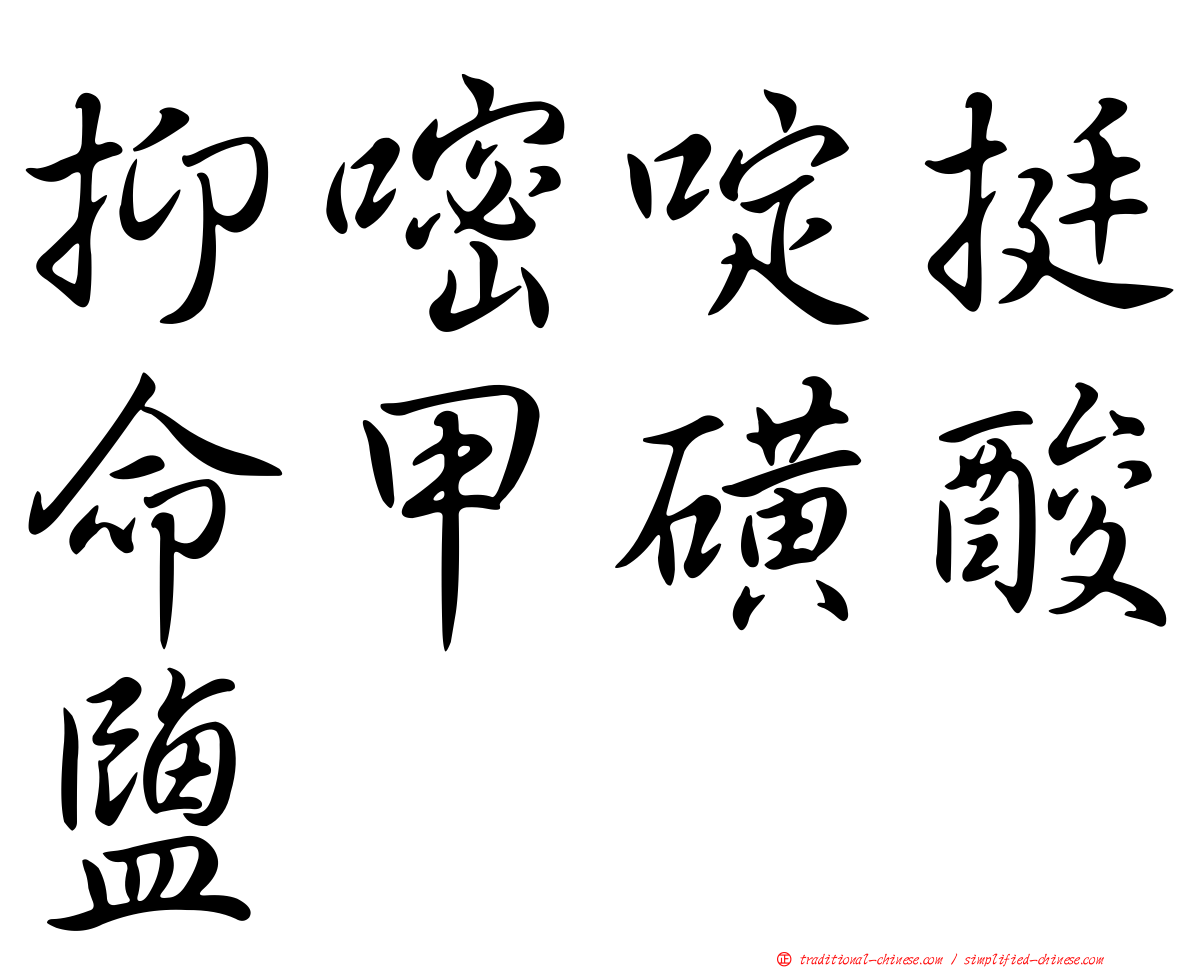 抑嘧啶挺
命甲磺酸
鹽
㊣ traditional-chinese.com / simplified-chinese.com